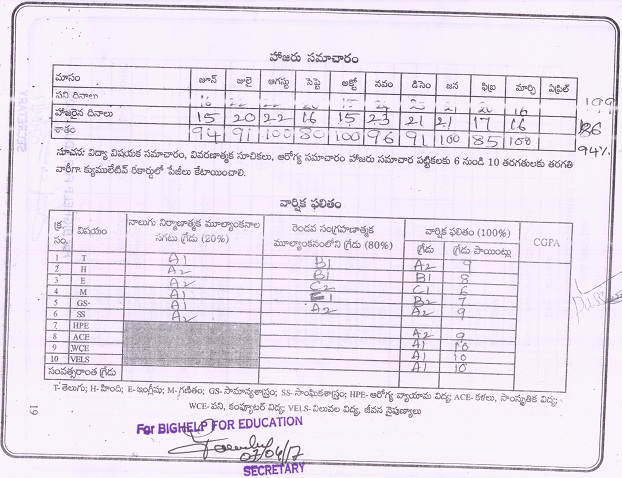 హాజరు సమాచారం
మాసం జూన్ జులై ఆగస్టు సెప్టె అక్టో నవం డిసెం జన ఫిబ్ర మార్చి ఏప్రిల్
పని దినాలు
హాజరైన దినాలు 15 20 22 16 15 23 21 21 17 16 186
శాతం 94 91 100 80 100 96 91 100 85 100 94%
సూచన: విద్యా విషయక సమాచారం, వివరణాత్మక సూచికలు, ఆరోగ్య సమాచారం హాజరు సమాచార పట్టికలకు 6 నుండి 10 తరగతులకు తరగతి
వారీగా క్యుములేటివ్ రికార్డులో పేజీలు కేటాయించాలి.
వార్షిక ఫలితం
క్ర. సం. విషయం నాలుగు నిర్మాణాత్మక మూల్యాంకనాల సగటు గ్రేడు (20%) రెండవ సంగ్రహణాత్మక మూల్యాంకనంలోని గ్రేడు (80%) వార్షిక ఫలితం (100%) CGPA
గ్రేడు గ్రేడు పాయింట్లు
1 T A1 B1 A2 9
2 H A2 B1 B1 8
3 E A2 C2 C1 6
4 M A1 B2 7
5 GS A1 A2 A2 9
6 SS A2
7 HPE A2 9
8 ACE A1 10
9 WCE A1 10
10 VELS A1 10
సంవత్సరాంత గ్రేడు
T-తెలుగు; H-హింది; E-ఇంగ్లీషు; M-గణితం; GS-సామాన్యశాస్త్రం; SS-సాంఘికశాస్త్రం; HPE-ఆరోగ్య వ్యాయామ విద్య; ACE-కళలు, సాంస్కృతిక విద్య;
WCE-పని, కంప్యూటర్ విద్య; VELS-విలువల విద్య, జీవన నైపుణ్యాలు
19
For BIGHELP FOR EDUCATION
07/04/17
SECRETARY